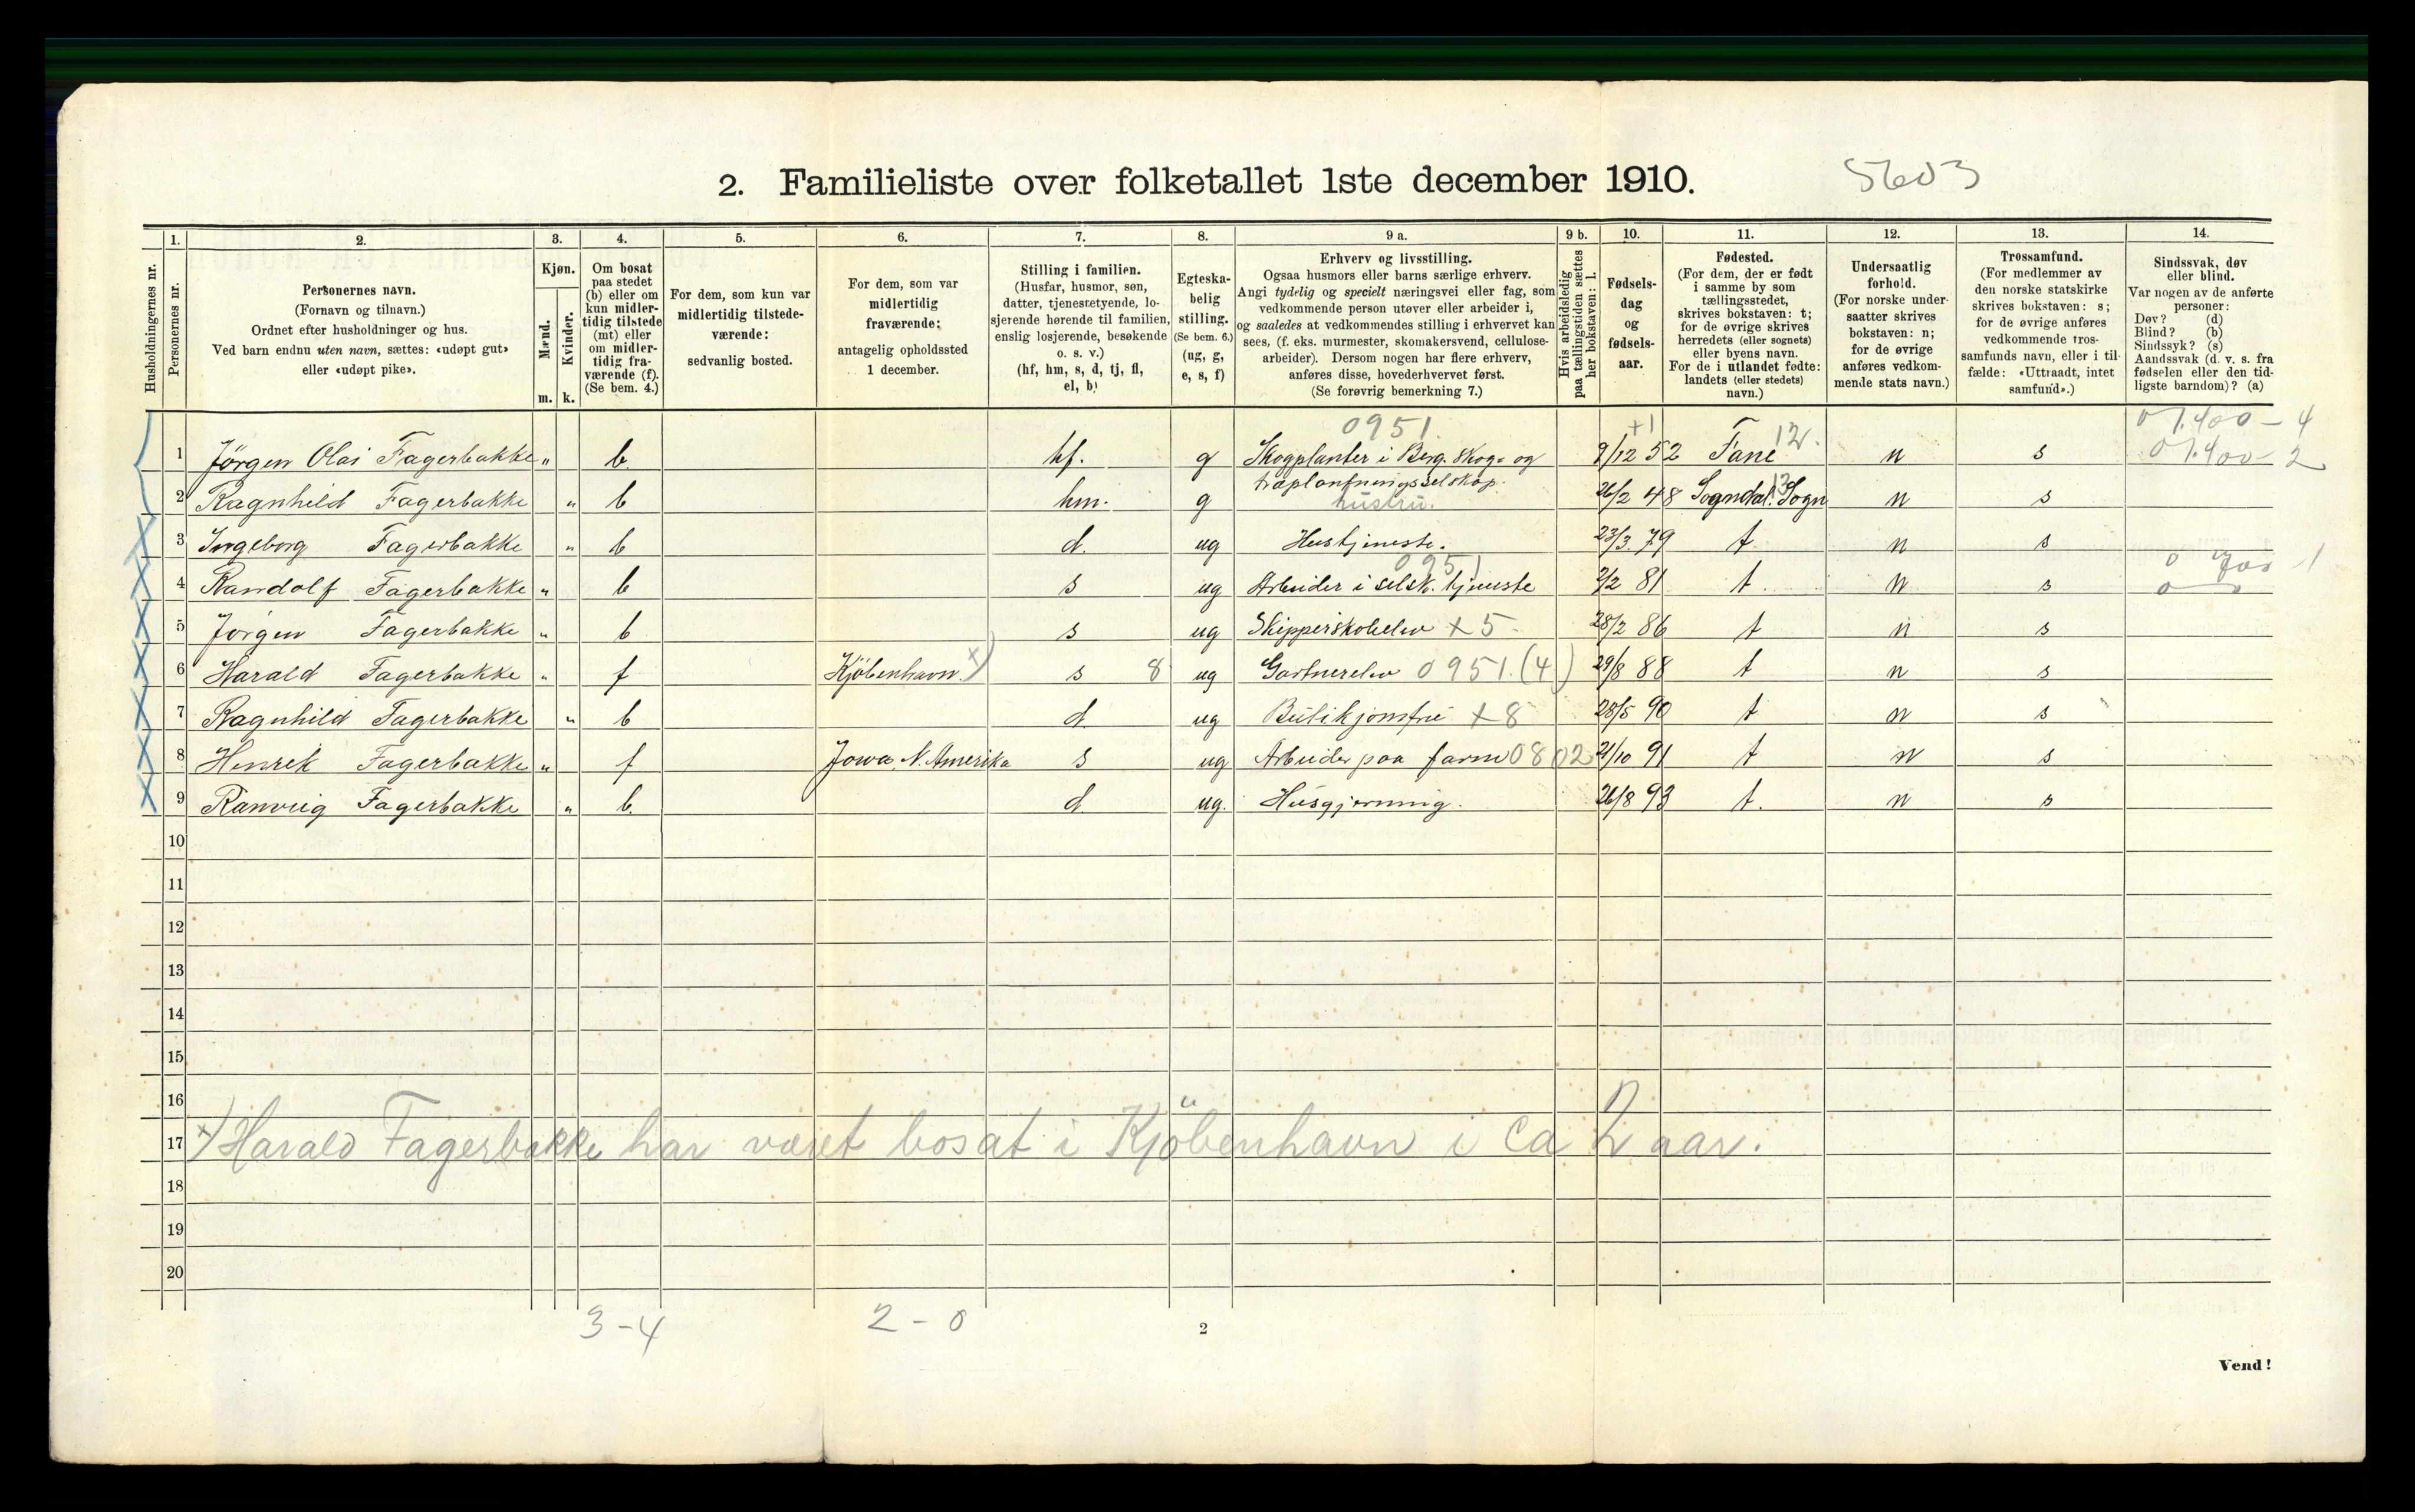 2. Familieliste over folketallet 1ste december 1910.
5603
Husholdningernes nr.
1.
Personernes nr.
2.
Personernes navn.
(Fornavn og tilnavn.)
Ordnet efter husholdninger og hus.
Ved barn endnu uten navn, sættes: «udøpt gut»
eller «udøpt pike».
3.
Kjøn.
Mænd.
Kvinder.
m. k.
4.
Om bosat
paa stedet
(b) eller om
kun midler-
tidig tilstede
(mt) eller
om midler-
tidig fra-
værende (f).
(Se bem. 4.)
5.
For dem, som kun var
midlertidig tilstede-
værende:
sedvanlig bosted.
6.
For dem, som var
midlertidig
fraværende:
antagelig opholdssted
1 december.
7.
Stilling i familien.
(Husfar, husmor, søn,
datter, tjenestetyende, lo-
sjerende hørende til familien,
enslig losjerende, besøkende
o. s. v.)
(hf, hm, s, d, tj, fl,
el, b)
8.
Egteska-
belig
stilling.
(Se bem. 6.)
(ug, g,
e, s, f)
9 a.
Erhverv og livsstilling.
Ogsaa husmors eller barns særlige erhverv.
Angi tydelig og specielt næringsvei eller fag, som
vedkommende person utøver eller arbeider i,
og saaledes at vedkommendes stilling i erhvervet kan
sees, (f. eks. murmester, skomakersvend, cellulose-
arbeider). Dersom nogen har flere erhverv,
anføres disse, hovederhvervet først.
(Se forøvrig bemerkning 7.)
9 b.
Hvis arbeidsledig
paa tællingstiden sættes
her bokstaven: l.
10.
Fødsels-
dag
og
fødsels-
aar.
11.
Fødested.
(For dem, der er født
i samme by som
tællingsstedet,
skrives bokstaven: t;
for de øvrige skrives
herredets (eller sognets)
eller byens navn.
For de i utlandet fødte:
landets (eller stedets)
navn.)
12.
Undersaatlig
forhold.
(For norske under-
saatter skrives
bokstaven: n;
for de øvrige
anføres vedkom-
mende stats navn.)
13.
Trossamfund.
(For medlemmer av
den norske statskirke
skrives bokstaven: s;
for de øvrige anføres
vedkommende tros-
samfunds navn, eller i til-
fælde: «Uttraadt, intet
samfund».)
14.
Sindssvak, døv
eller blind.
Var nogen av de anførte
personer:
Døv? (d)
Blind? (b)
Sindssyk? (s)
Aandssvak (d. v. s. fra
fødselen eller den tid-
ligste barndom)? (a)
0951 +1 12.
1 Jörgen Olai Fagerbakke " b hf. g Skogplanter i Berg. Skog- og 9/12 52 Fane n s
træplantningsselskap.
2 Ragnhild Fagerbakke " b hm. g hustru. 26/2 48 Sogndal. Sogn 13 n s
3 Ingeborg Fagerbakke " b d. ug Hustjeneste. 23/3. 79 t n s
0951
4 Randolf Fagerbakke " b s ug Arbeider i selsk. tjeneste 2/2 81 t. n s
5 Jörgen Fagerbakke " b s ug Skipperskoleelev +5 28/2 86 t n s
6 Harald Fagerbakke " f Kjöbenhavn. x) s 8 ug Gartnerelev 0951 (4) 29/8 88 t n s
7 Ragnhild Fagerbakke " b d. ug Butikjomfru +8 28/5 90 t n s
8 Henrik Fagerbakke " f Jowa, N. Amerika s ug Arbeider paa farm 0802 21/10 91 t n s
9 Ranveig Fagerbakke " b. d. ug. Husgjerning. 26/8 93 t. n s
10
11
12
13
14
15
16
17 x) Harald Fagerbakke har været bosat i Kjöbenhavn i ca 2 aar.
18
19
20
3-4 2-0
2
Vend!